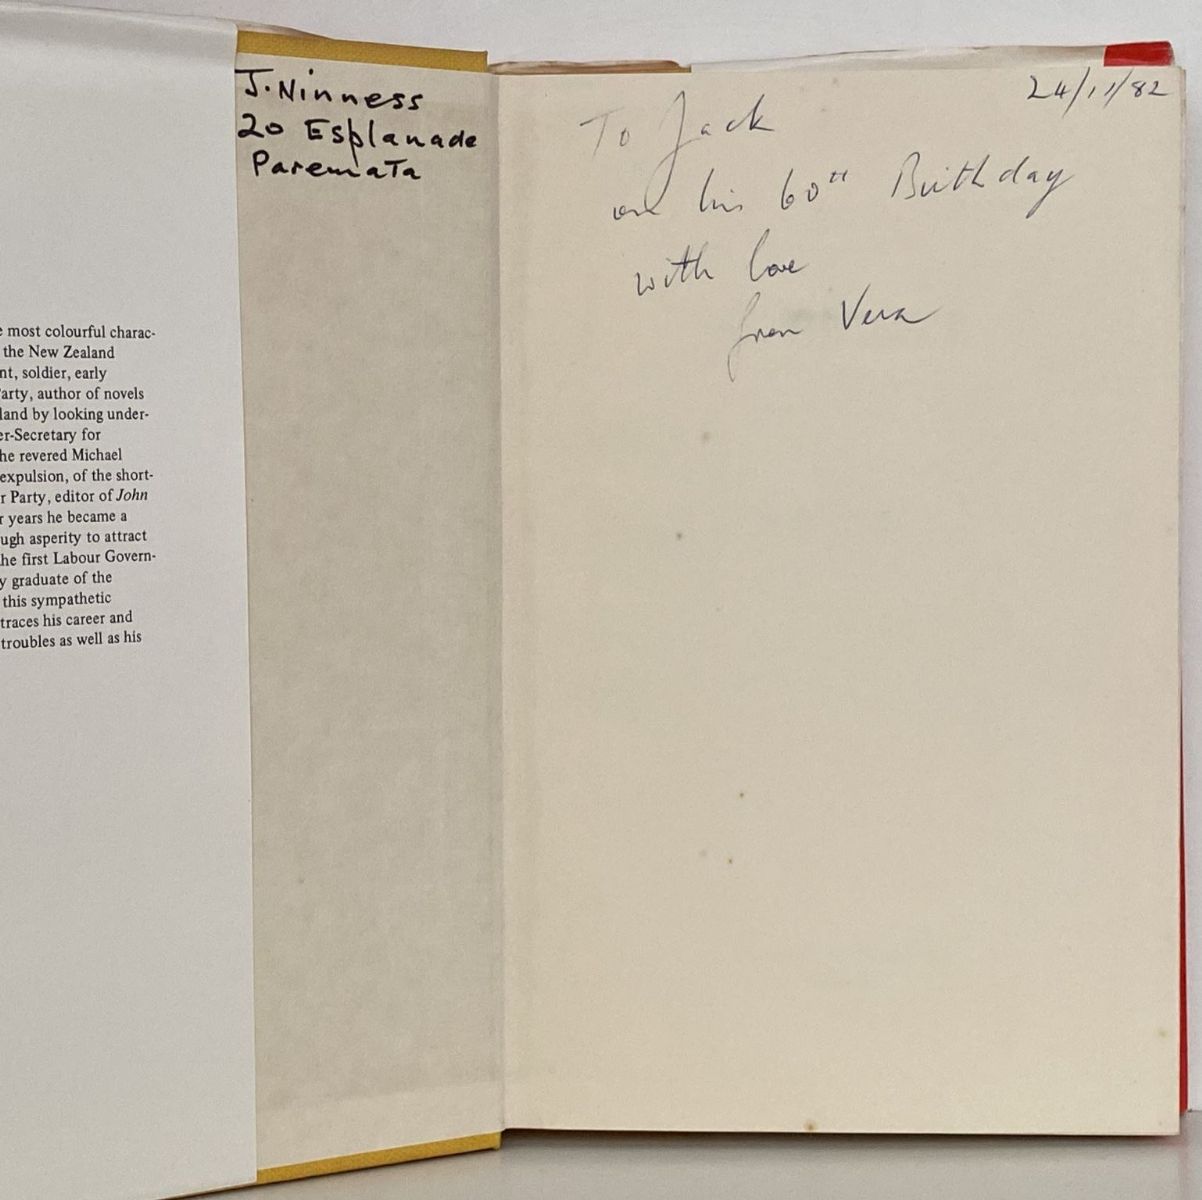 e most colourful charac-
the New Zealand
nt, soldier, early
arty, author of novels
land by looking under-
er-Secretary for
he revered Michael
expulsion, of the short-
r Party, editor of John
r years he became a
ugh asperity to attract
he first Labour Govern-
y graduate of the
this sympathetic
traces his career and
troubles as well as his
J. Ninness
20 Esplanade
Paremata
24/11/82
To Jack
on his 60th Birthday
with love
from Vera